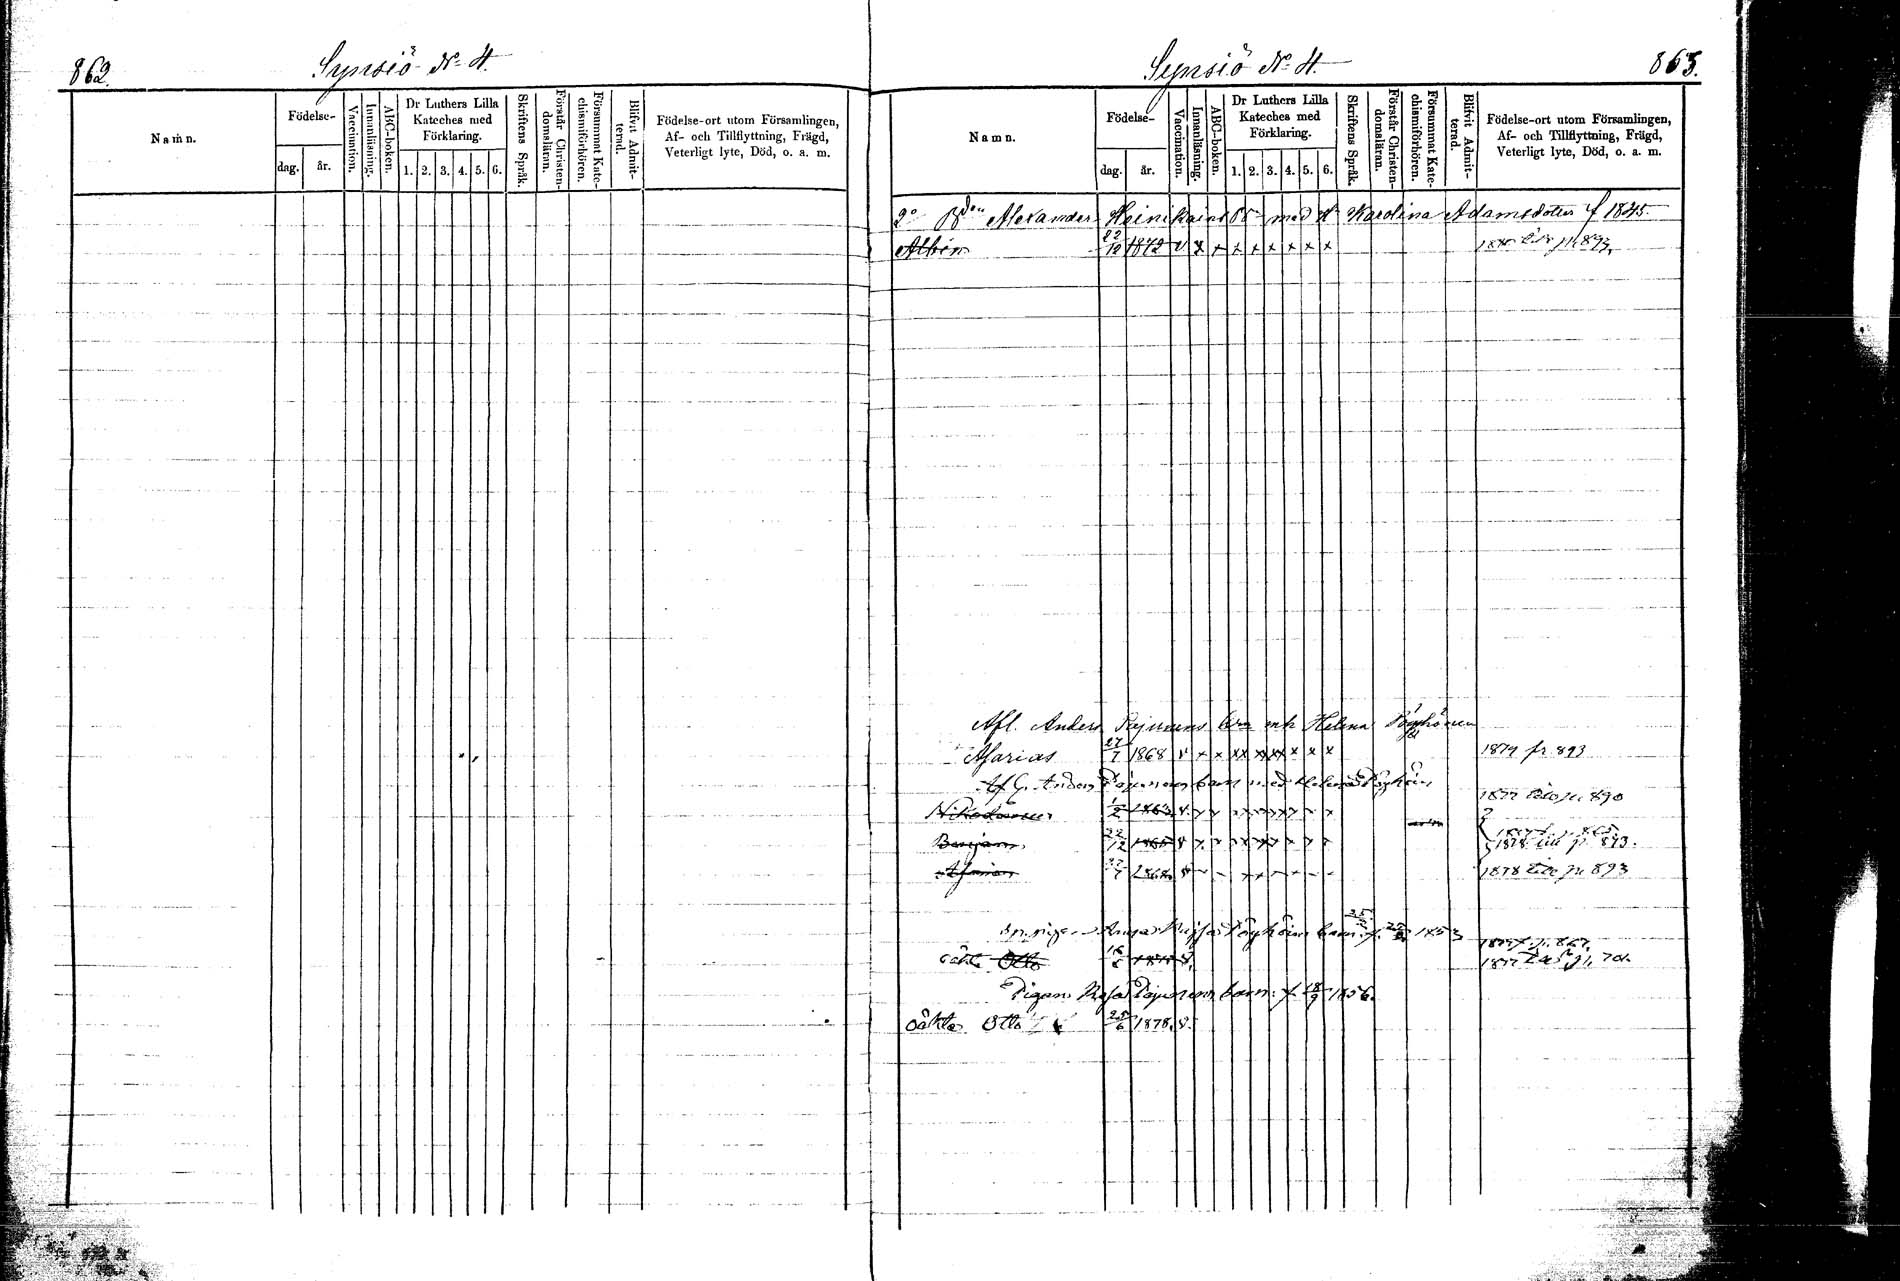 862.
Synsiö No 4.
Namn.
Födelse-
dag.
år.
Vaccination.
Innanläsning.
ABC-boken.
Dr Luthers Lilla
Kateches med
Förklaring.
1. 2. 3. 4. 5. 6.
Skriftens Språk.
Förstår Christen-
domsläran.
Försummat Kate-
chismiförhören.
Blifvit Admit-
terad.
Födelse-ort utom Församlingen,
Af- och Tillflyttning, Frägd,
Veterligt lyte, Död, o. a. m.
Synsiö No 4.
863.
Namn.
Födelse-
dag.
år.
Vaccination.
Innanläsning.
ABC-boken.
Dr Luthers Lilla
Kateches med
Förklaring.
1. 2. 3. 4. 5. 6.
Skriftens Språk.
Förstår Christen-
domsläran.
Försummat Kate-
chismiförhören.
Blifvit Admit-
terad.
Födelse-ort utom Församlingen,
Af- och Tillflyttning, Frägd,
Veterligt lyte, Död, o. a. m.
2o Bden Alexander Heinikains med H Karolina Adamsdotter f 1845
Albin 22/12 1872 v x x x x x x x x 893
Afl. Anders Pajunens barn enk Helena
Asarias 27/7 1868 v x x xx xx xx x x x 1874 fr. 893
Afl. Anders Pajunens barn med Helena
Nikodemus 1/2 v x x 1877 till p. 890
Benjam 22/12 1865 v x x 1878 till p. 893.
Asarias 27/7 1868 v 1878 till p. 893
Anna barn f. 1853
oäkta Otto 16/ v. 1877
Pigan Rosa Pajunens barn f 18/9 1856.
oäkta Otto 25/6 1878. v.